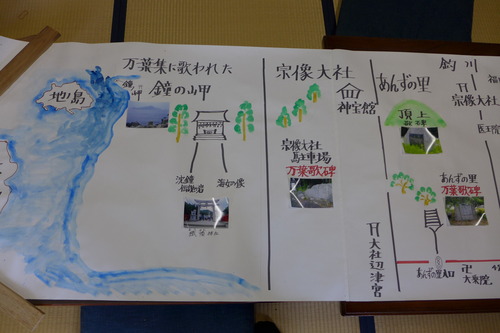 万葉集に歌われた
鐘の岬
鐘
岬
地ノ島
沈鐘
海女の像
宗像大社
神宝館
宗像大社
駐車場
万葉歌碑
あんずの里
頂上
歌碑
釣川
宗像大社
医王院
あんずの里
万葉歌碑
大社辺津宮
あんずの里入口
卍
大乗院